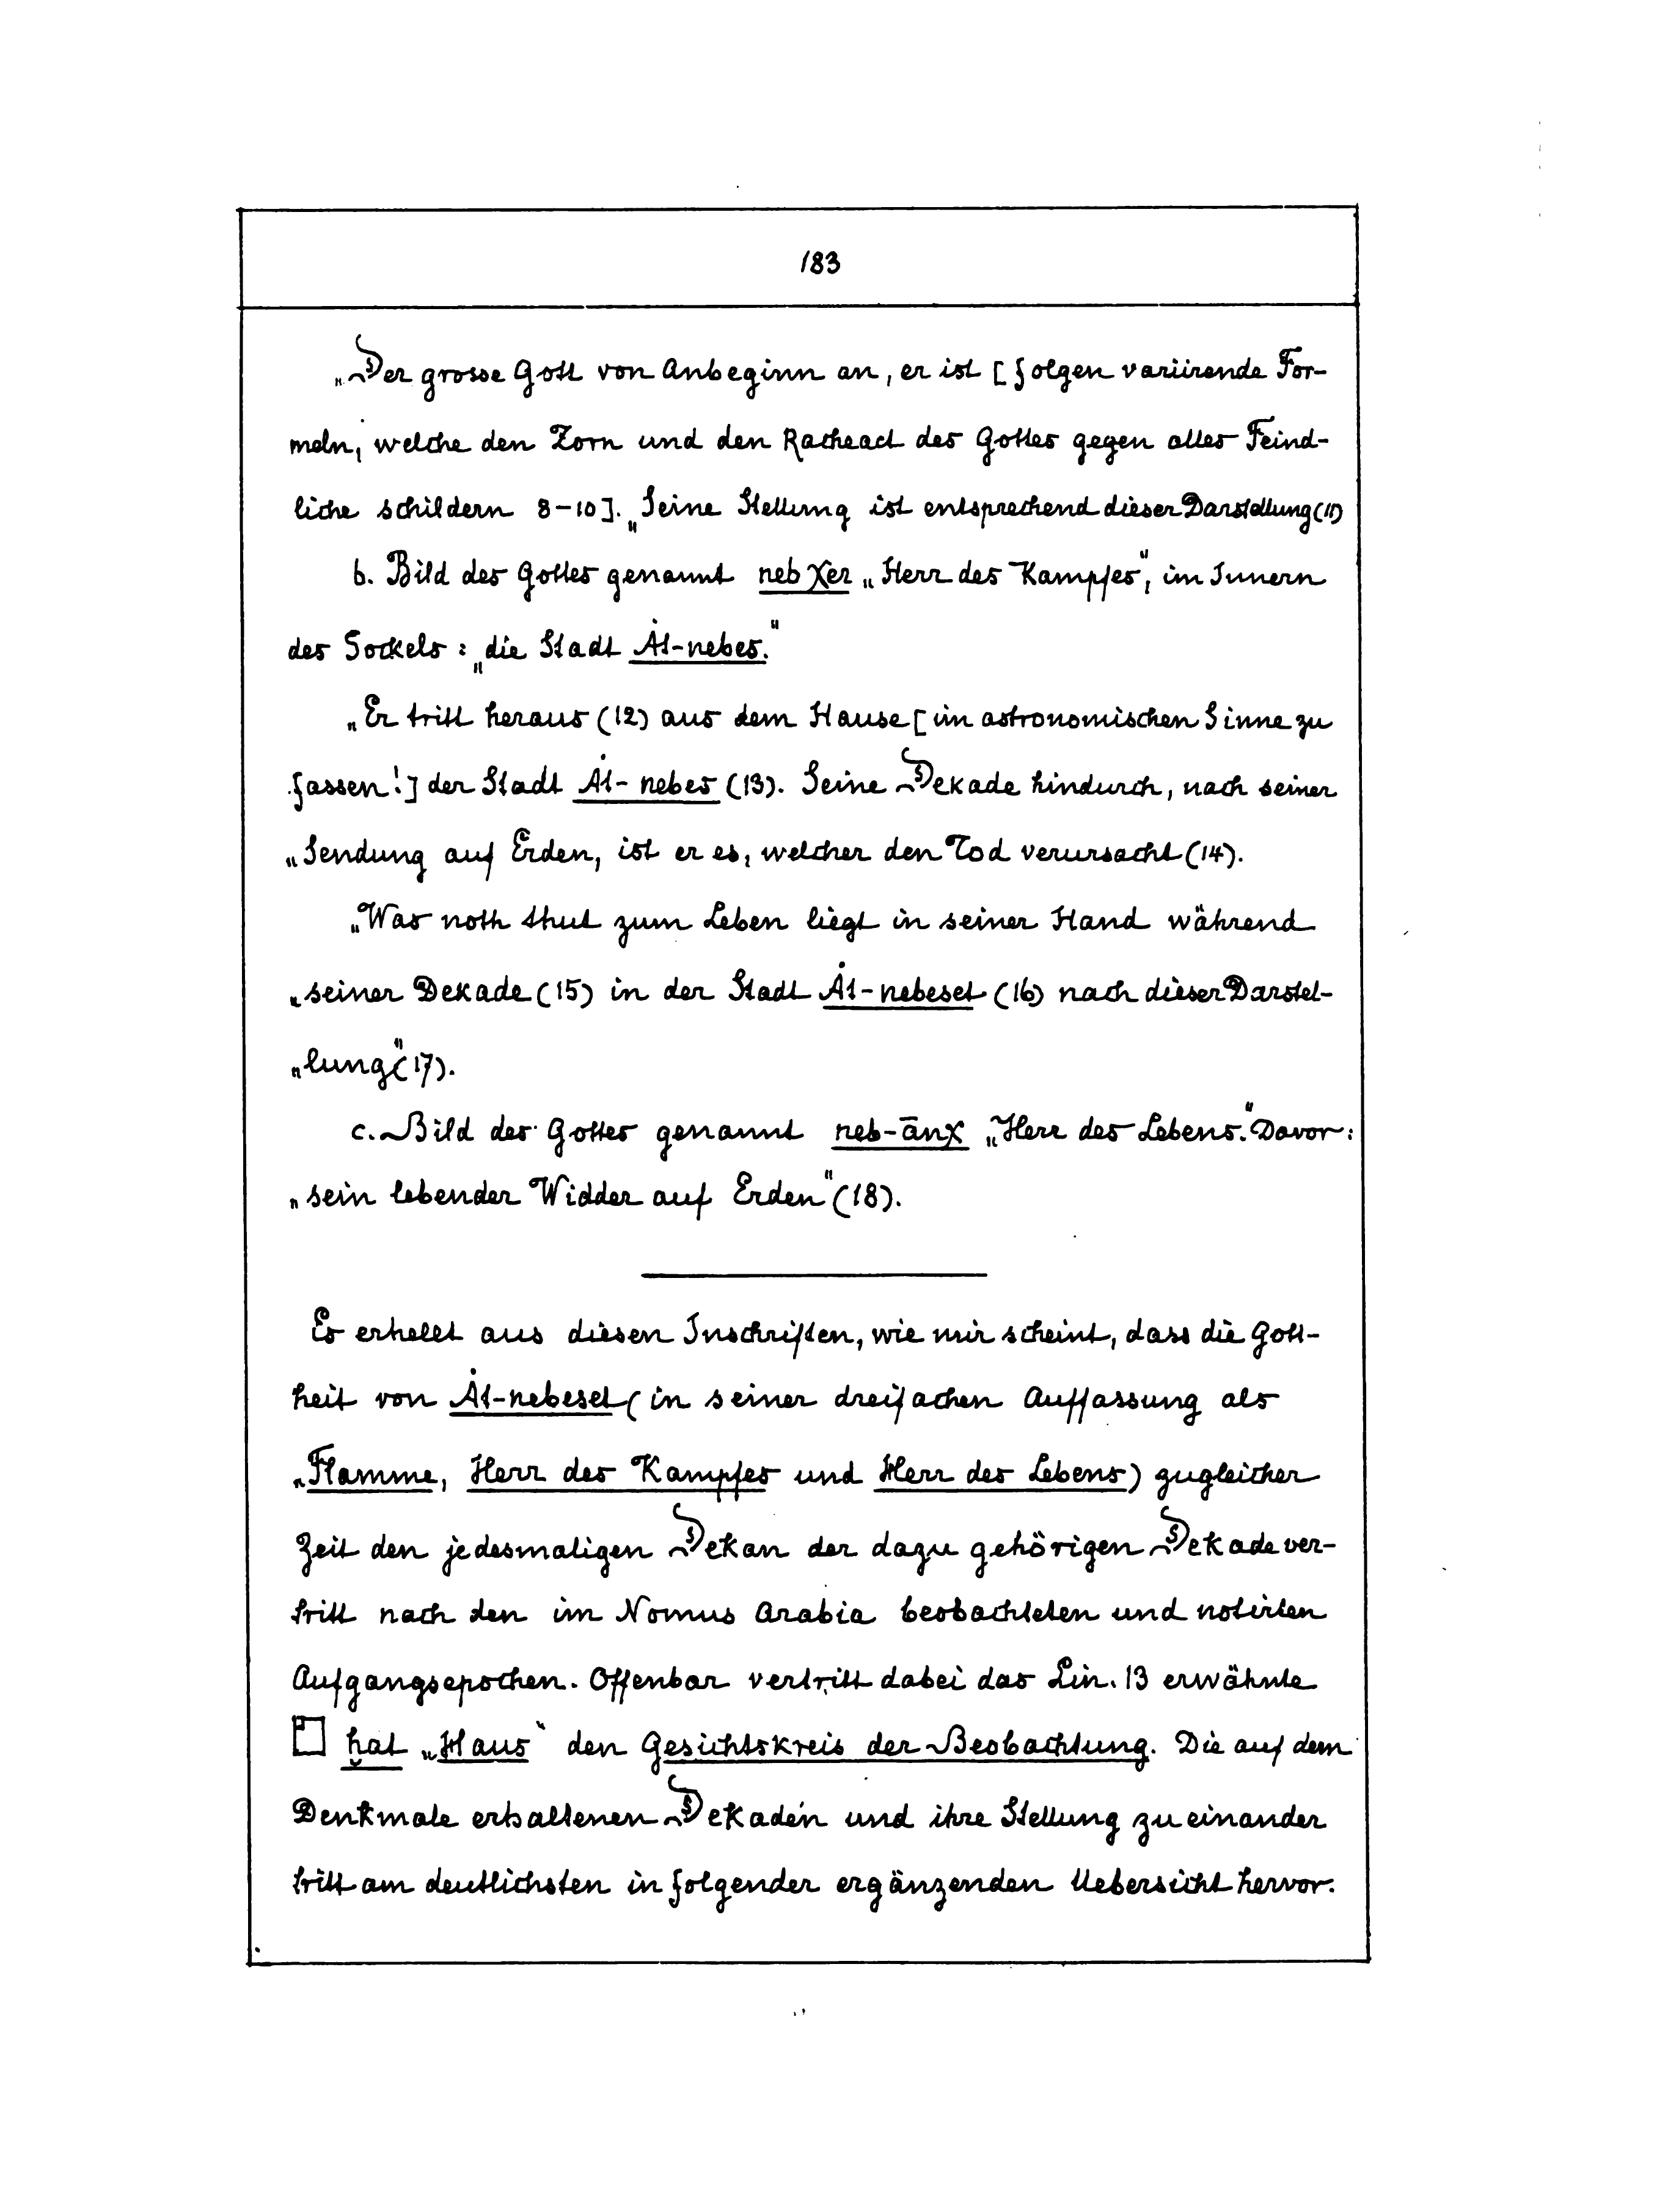 183
„Der grosse Gott von Anbeginn an, er ist [folgen variirende For-
meln, welche den Zorn und den Racheact des Gottes gegen alles Feind-
liche schildern 8-10]. „Seine Stellung ist entsprechend dieser Darstellung (11)
b. Bild des Gottes genannt neb χer „Herr des Kampfes", im Innern
des Sockels: „die Stadt Ȧt-nebes."
„Er tritt heraus (12) aus dem Hause [im astronomischen Sinne zu
fassen!] der Stadt Ȧt-nebes (13). Seine Dekade hindurch, nach seiner
„Sendung auf Erden, ist er es, welcher den Tod verursacht (14).
„Was noth thut zum Leben liegt in seiner Hand während
„seiner Dekade (15) in der Stadt Ȧt-nebeset (16) nach dieser Darstel-
„lung" (17).
c. Bild des Gottes genannt neb-ānχ „Herr des Lebens." Davor:
„sein lebender Widder auf Erden" (18).
Es erhellt aus diesen Inschriften, wie mir scheint, dass die Gott-
heit von Ȧt-nebeset (in seiner dreifachen Auffassung als
„Flamme, Herr des Kampfes und Herr des Lebens) zugleicher
Zeit den jedesmaligen Dekan der dazu gehörigen Dekade ver-
tritt nach den im Nomus Arabia beobachteten und notirten
Aufgangsepochen. Offenbar vertritt dabei das Lin. 13 erwähnte
𓉗 ḫat „Haus" den Gesichtskreis der Beobachtung. Die auf dem
Denkmale erhaltenen Dekaden und ihre Stellung zu einander
tritt am deutlichsten in folgender ergänzenden Uebersicht hervor.